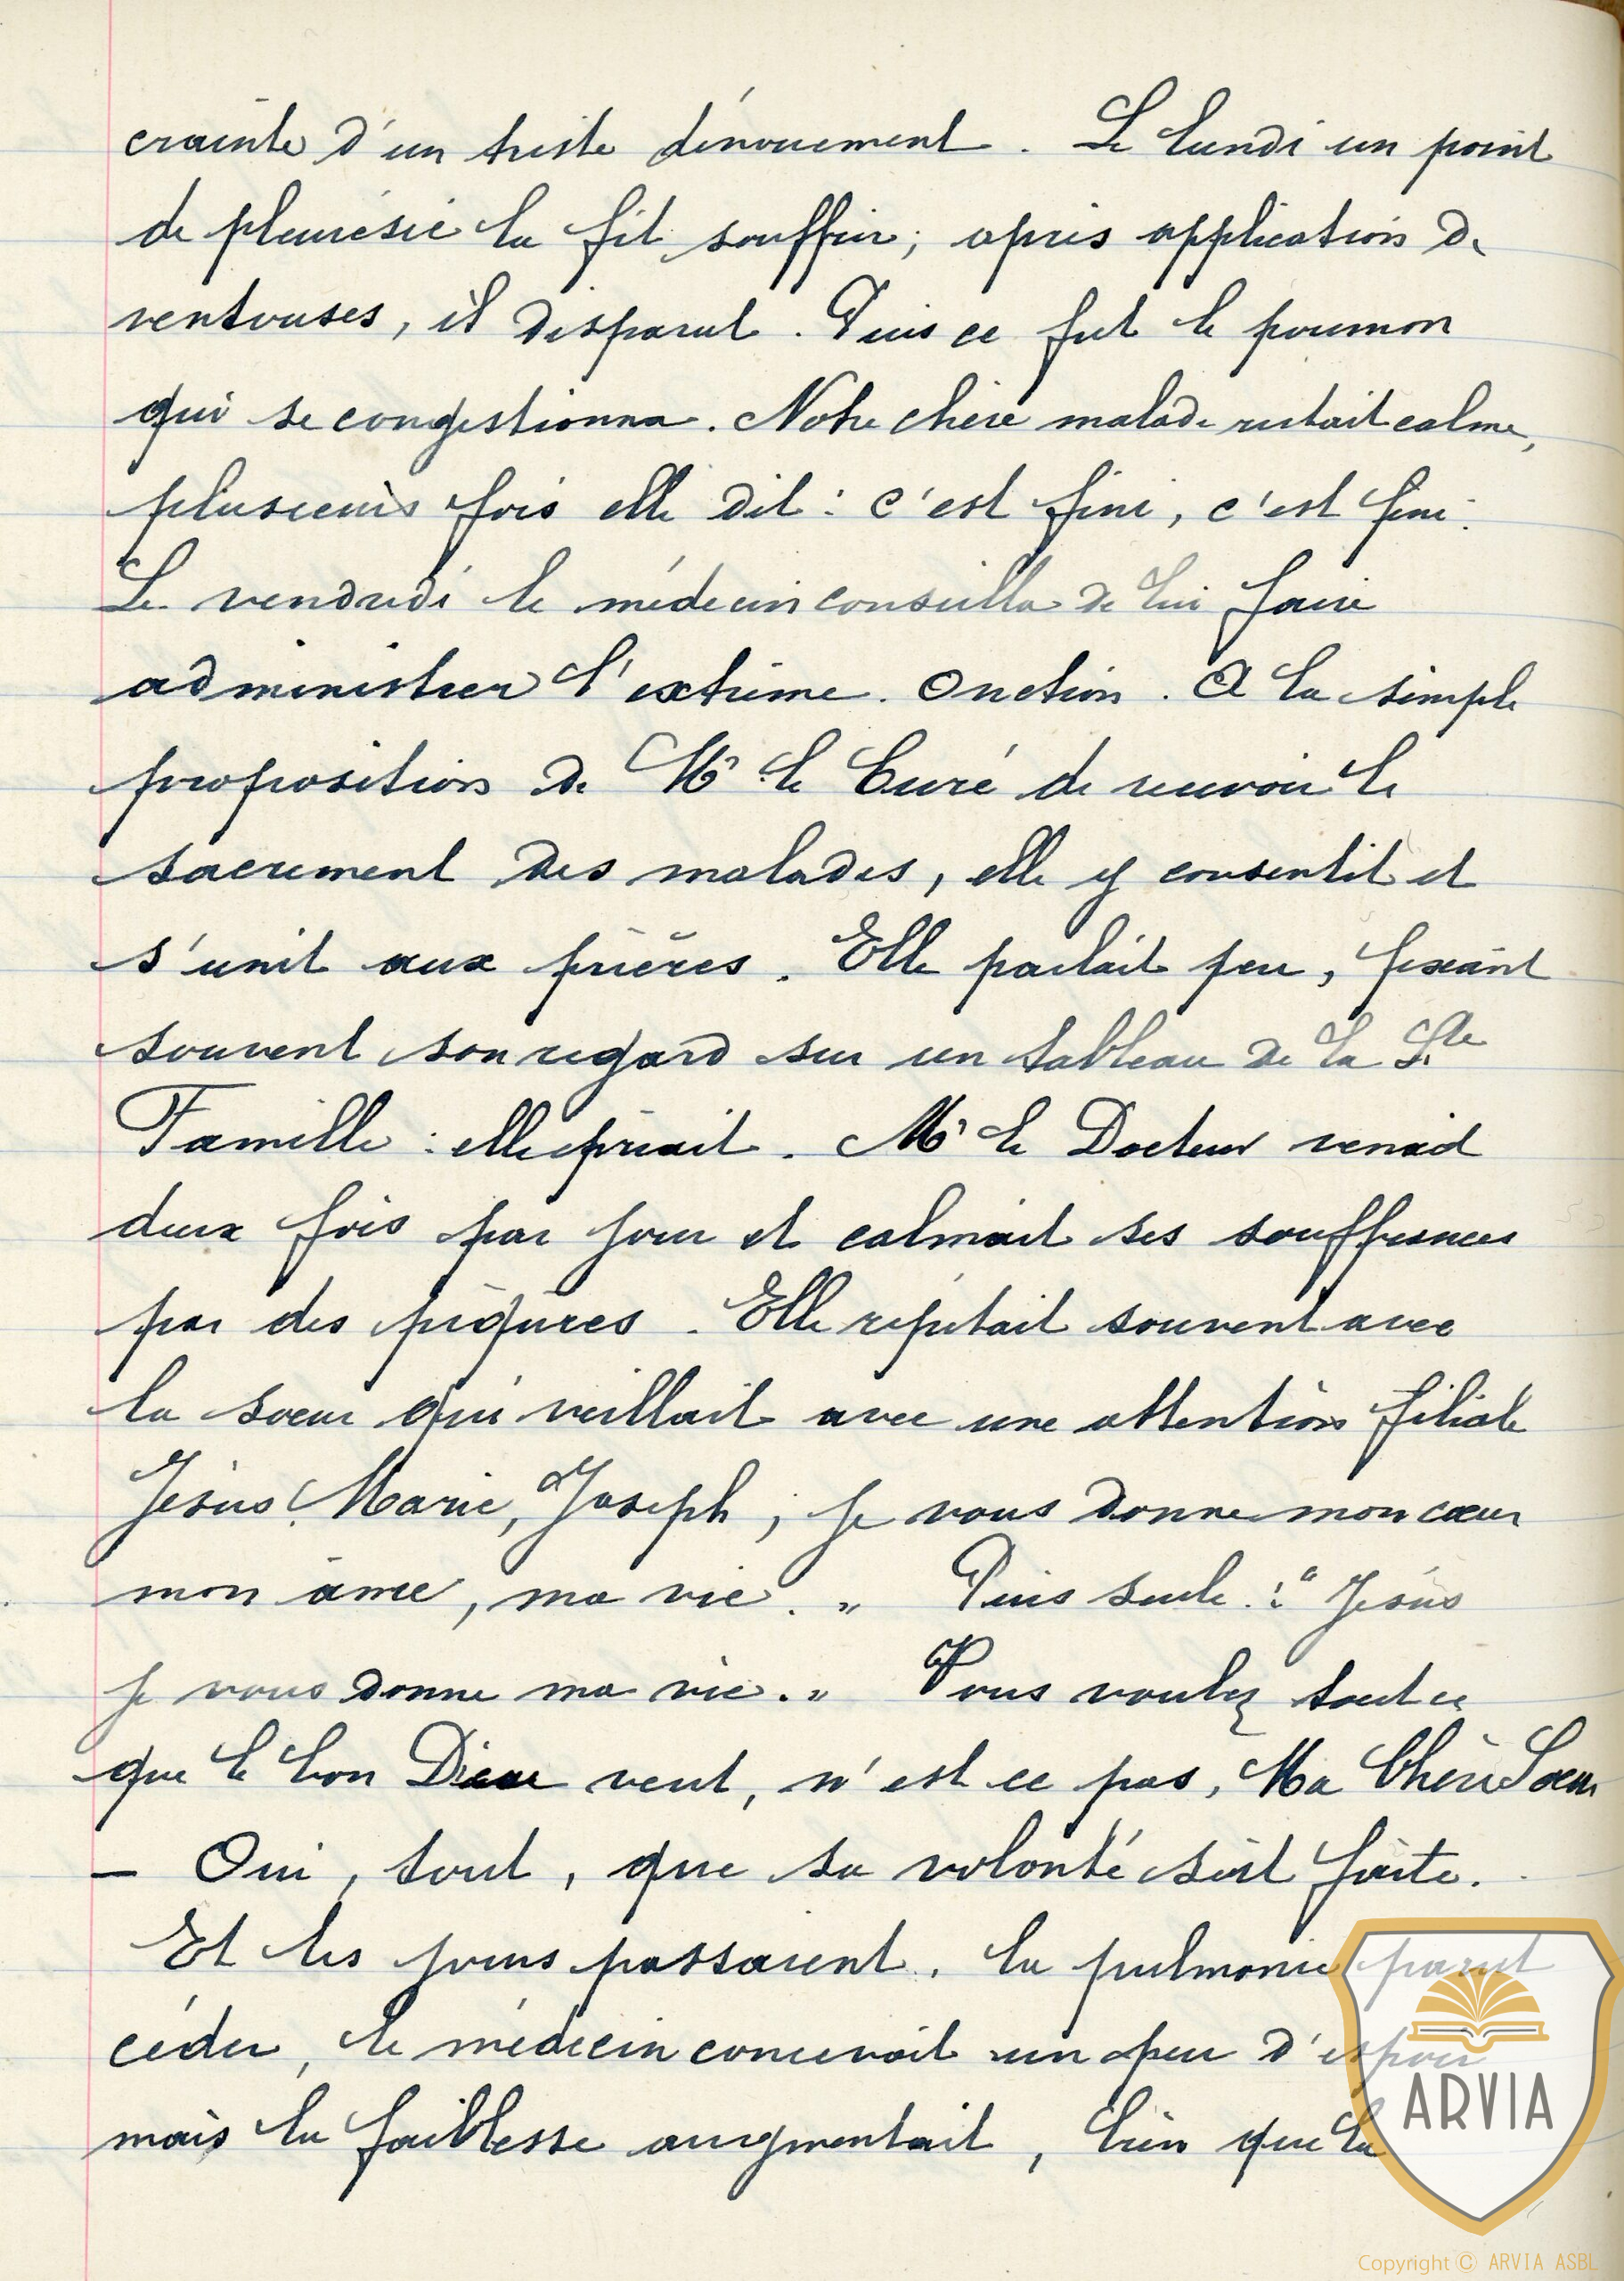 crainte d'un triste dénouement. Le lundi un point
de pleurésie la fit souffrir; après application de
ventouses, il disparut. Puis ce fut le poumon
qui se congestionna. Notre chère malade restait calme,
plusieurs fois elle dit : c'est fini, c'est fini.
Le vendredi le médecin conseilla de lui faire
administrer l'extrême-onction. A la simple
proposition de Mr le Curé de recevoir le
sacrement des malades, elle y consentit et
s'unit aux prières. Elle parlait peu, fixant
souvent son regard sur un tableau de la Ste
Famille : elle priait. Mr le Docteur venait
deux fois par jour et calmait ses souffrances
par des piqûres. Elle répétait souvent avec
la soeur qui veillait avec une attention filiale
Jésus, Marie, Joseph, je vous donne mon coeur
mon âme, ma vie. " Puis seule : " Jésus
je vous donne ma vie. " Vous voulez tout ce
que le bon Dieu veut, n'est ce pas, Ma Chère Soeur
— Oui, tout, que sa volonté soit faite.
Et les jours passaient, la pulmonie parut
céder, le médecin concevait un peu d'espoir
mais la faiblesse augmentait, bien que la
ARVIA
Copyright © ARVIA ASBL